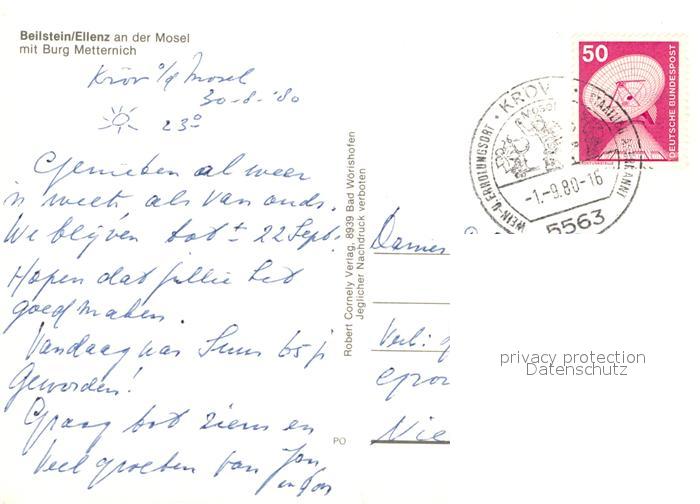 Beilstein/Ellenz an der Mosel
mit Burg Metternich
Kröv a/d Mosel
30-8-'80
23°
Genieten al weer
'n week als van ouds.
We blijven tot ± 22 Sept.
Hopen dat jullie het
goed maken.
Vandaag was 65 j
geworden!
Graag tot ziens en
veel groeten van Jan
en
Robert Cornely Verlag, 8939 Bad Wörishofen
Jeglicher Nachdruck verboten
PO
50
DEUTSCHE BUNDESPOST
KRÖV
STAATLICH ANERKANNT
WEIN-U.ERHOLUNGSORT
-1.-9.80-16
5563
Dames
privacy protection
Datenschutz
Nie